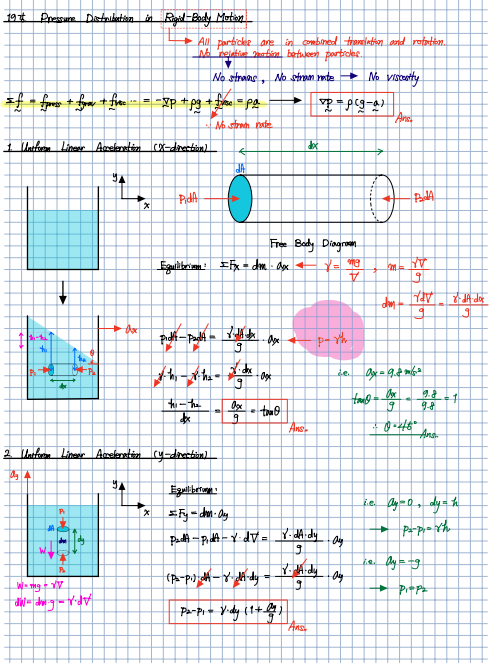 19주차 Pressure Distribution in Rigid-Body Motion
All particles are in combined translation and rotation.
No relative motion between particles.
No strains, No strain rate → No viscosity
Σf = fpress + fgrav + fvisc ... = -∇p + ρg + fvisc = ρa → ∇p = ρ(g-a)
Ans.
∴ No strain rate
1. Uniform Linear Acceleration (X-direction)
dx
dA
y
x
P₁dA
P₂dA
Free Body Diagram
Equilibrium: ΣFx = dm · ax ← γ = mg/V , m = γV/g
dm = γdV/g = γ·dA·dx/g
ax
h₁-h₂
h₁
h₂
θ
P₁
P₂
dx
P₁dA - P₂dA = γ·dA·dx/g · ax ← p = γh
γ·h₁ - γ·h₂ = γ·dx/g · ax
h₁-h₂/dx = ax/g = tanθ
Ans.
i.e. ax = 9.8 m/s²
tanθ = ax/g = 9.8/9.8 = 1
∴ θ = 45°
Ans.
2. Uniform Linear Acceleration (y-direction)
ay
y
x
P₁
dA
dm
dy
W
P₂
W = mg = γV
dW = dm·g = γ·dV
Equilibrium:
ΣFy = dm·ay
P₂dA - P₁dA - γ·dV = γ·dA·dy/g · ay
(P₂-P₁)·dA - γ·dA·dy = γ·dA·dy/g · ay
P₂-P₁ = γ·dy (1 + ay/g)
Ans.
i.e. ay = 0 , dy = h
→ P₂-P₁ = γh
i.e. ay = -g
→ P₁ = P₂